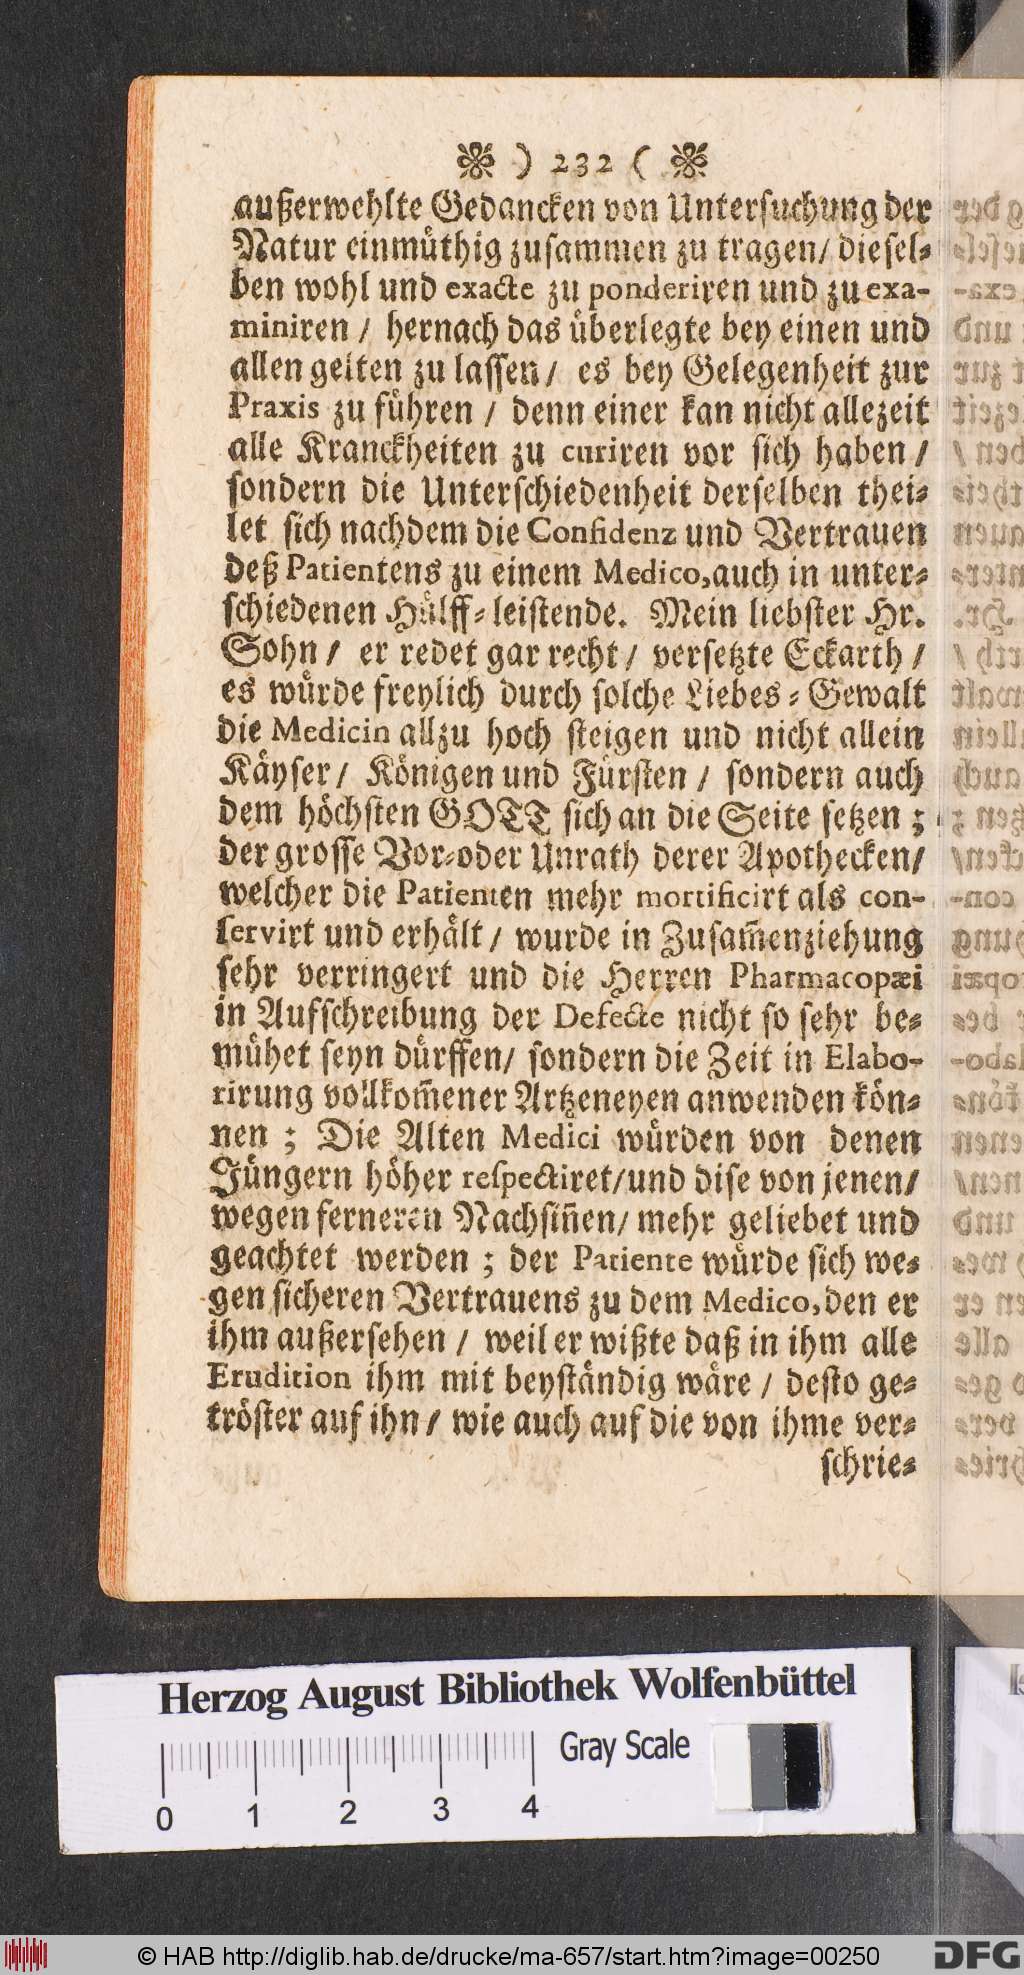 ) 232 (
außerwehlte Gedancken von Untersuchung der
Natur einmüthig zusammen zu tragen/ diesel⸗
ben wohl und exacte zu ponderiren und zu exa-
miniren / hernach das überlegte bey einen und
allen gelten zu lassen / es bey Gelegenheit zur
Praxis zu führen / denn einer kan nicht allezeit
alle Kranckheiten zu curiren vor sich haben /
sondern die Unterschiedenheit derselben thei⸗
let sich nachdem die Confidenz und Vertrauen
deß Patientens zu einem Medico, auch in unter⸗
schiedenen Hülff⸗leistende. Mein liebster Hr.
Sohn / er redet gar recht / versetzte Eckarth /
es würde freylich durch solche Liebes⸗Gewalt
die Medicin allzu hoch steigen und nicht allein
Käyser / Königen und Fürsten / sondern auch
dem höchsten GOTT sich an die Seite setzen ;
der grosse Vor⸗oder Unrath derer Apothecken/
welcher die Patienten mehr mortificirt als con-
servirt und erhält / wurde in Zusam̄enziehung
sehr verringert und die Herren Pharmacopæi
in Aufschreibung der Defecte nicht so sehr be⸗
mühet seyn dürffen/ sondern die Zeit in Elabo-
rirung vollkom̄ener Artzeneyen anwenden kön⸗
nen ; Die Alten Medici würden von denen
Jüngern höher respectiret/und dise von jenen/
wegen ferneren Nachsin̄en/ mehr geliebet und
geachtet werden ; der Patiente würde sich we⸗
gen sicheren Vertrauens zu dem Medico, den er
ihm außersehen / weil er wißte daß in ihm alle
Erudition ihm mit beyständig wäre / desto ge⸗
tröster auf ihn / wie auch auf die von ihme ver⸗
schrie⸗
Herzog August Bibliothek Wolfenbüttel
Gray Scale
0 1 2 3 4
© HAB http://diglib.hab.de/drucke/ma-657/start.htm?image=00250
DFG